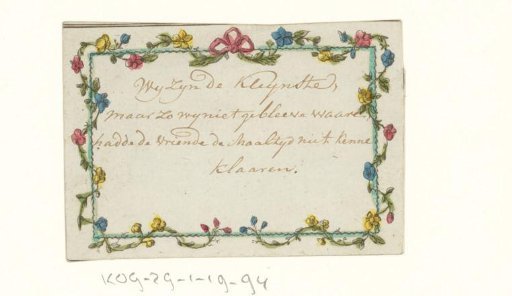 Wy Zyn de Kleynste,
maar zo wy niet gebleeve waare
hadde de vriende de Maaltyd niet kenne
Klaaren.
KOG-ZG-1-19-94